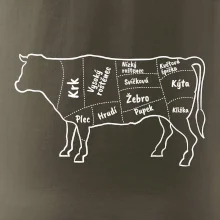 Krk
Vysoký
roštěnec
Nízký
roštěnec
Svíčková
Květová
špička
Kýta
Žebro
Pupek
Plec
Hrudí
Kližka